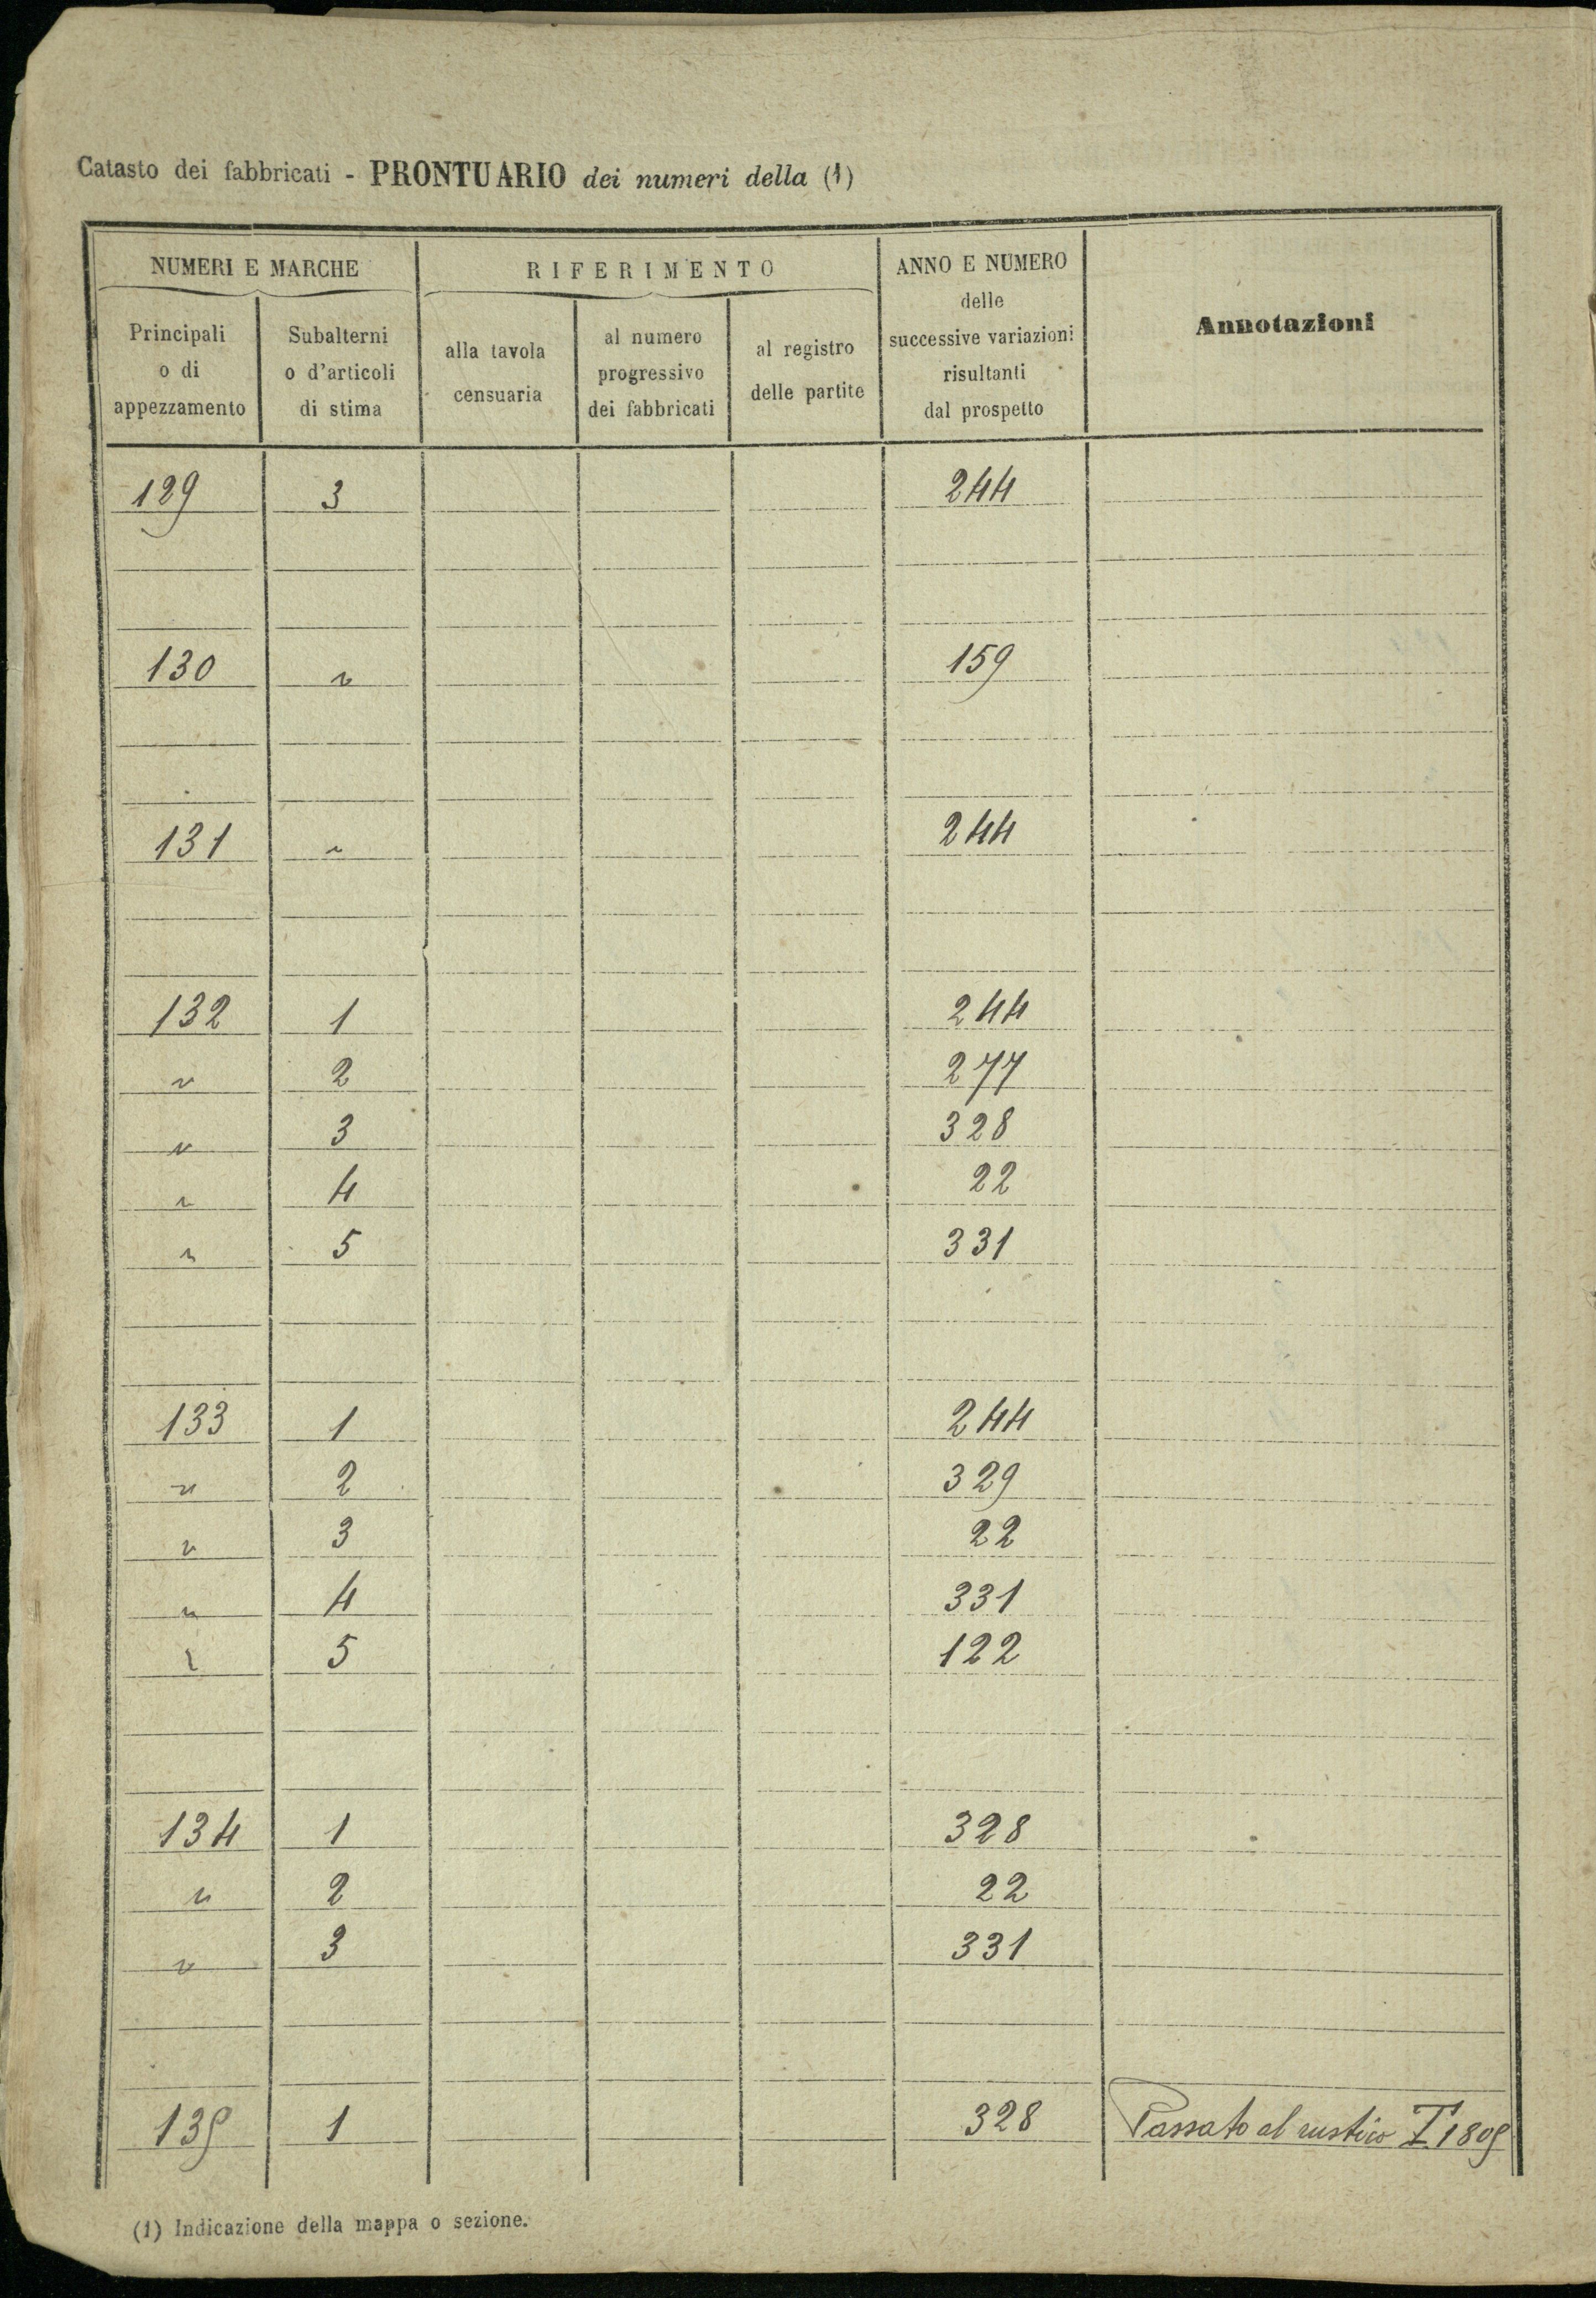 Catasto dei fabbricati - PRONTUARIO dei numeri della (1)
NUMERI E MARCHE
RIFERIMENTO
ANNO E NUMERO
delle
successive variazioni
risultanti
dal prospetto
Annotazioni
Principali
o di
appezzamento
Subalterni
o d'articoli
di stima
alla tavola
censuaria
al numero
progressivo
dei fabbricati
al registro
delle partite
129 3 244
130 " 159
131 " 244
132 1 244
" 2 277
" 3 328
" 4 22
" 5 331
133 1 244
" 2 329
" 3 22
" 4 331
" 5 122
134 1 328
" 2 22
" 3 331
135 1 328 Passato al rustico
(1) Indicazione della mappa o sezione.